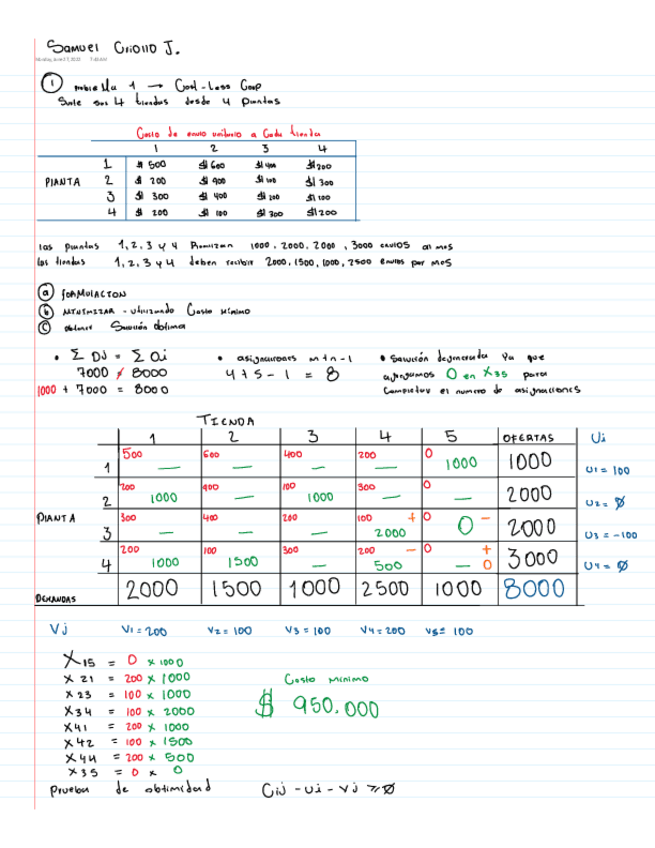 Samuel Criollo J.
① Problema 1 → Cost-Less Corp
Surte sus 4 tiendas desde 4 plantas
Costo de envio unitario a cada tienda
1 2 3 4
1 $ 500 $ 600 $ 400 $ 200
PLANTA 2 $ 200 $ 900 $ 100 $ 300
3 $ 300 $ 400 $ 200 $ 100
4 $ 200 $ 100 $ 300 $ 200
las plantas 1, 2, 3 y 4 Realizan 1000, 2000, 2000, 3000 envios al mes
las tiendas 1, 2, 3 y 4 deben recibir 2000, 1500, 1000, 2500 envios por mes
ⓐ FORMULACION
ⓑ MINIMIZAR - utilizando Costo Minimo
ⓒ obtener Solución óptima
• Σ Dj = Σ ai • asignaciones m+n-1 • Solución degenerada Ya que
7000 ≠ 8000 4 + 5 - 1 = 8 agregamos 0 en X35 para
1000 + 7000 = 8000 Completar el numero de asignaciones
TIENDA
1 2 3 4 5 OFERTAS Ui
500 600 400 200 0
1 — — — — 1000 1000 U1 = 100
200 900 100 300 0
2 1000 — 1000 — — 2000 U2 = Ø
PLANTA 300 400 200 100 + 0 -
3 — — — 2000 0 2000 U3 = -100
200 100 300 200 - 0 +
4 1000 1500 — 500 — 0 3000 U4 = Ø
DEMANDAS 2000 1500 1000 2500 1000 8000
Vj V1 = 200 V2 = 100 V3 = 100 V4 = 200 V5 = 100
X15 = 0 x 1000
X21 = 200 x 1000
X23 = 100 x 1000
X34 = 100 x 2000
X41 = 200 x 1000
X42 = 100 x 1500
X44 = 200 x 500
X35 = 0 x 0
Costo Minimo
$ 950.000
Prueba de obtimidad Cij - ui - vj ≥ Ø